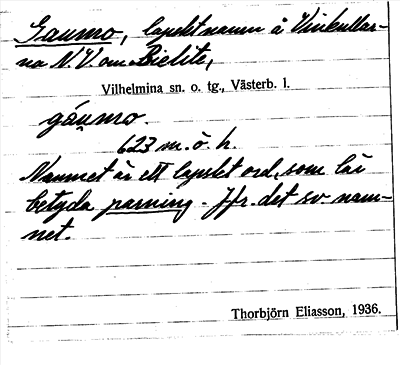 Gaumo, lapskt namn å Vinkullar-
na N.V. om Bielite,
Vilhelmina sn. o. tg., Västerb. l.
gáu̯mo.
623 m. ö. h.
Namnet är ett lapskt ord, som lär
betyda parning. Jfr. det sv. nam-
net.
Thorbjörn Eliasson, 1936.